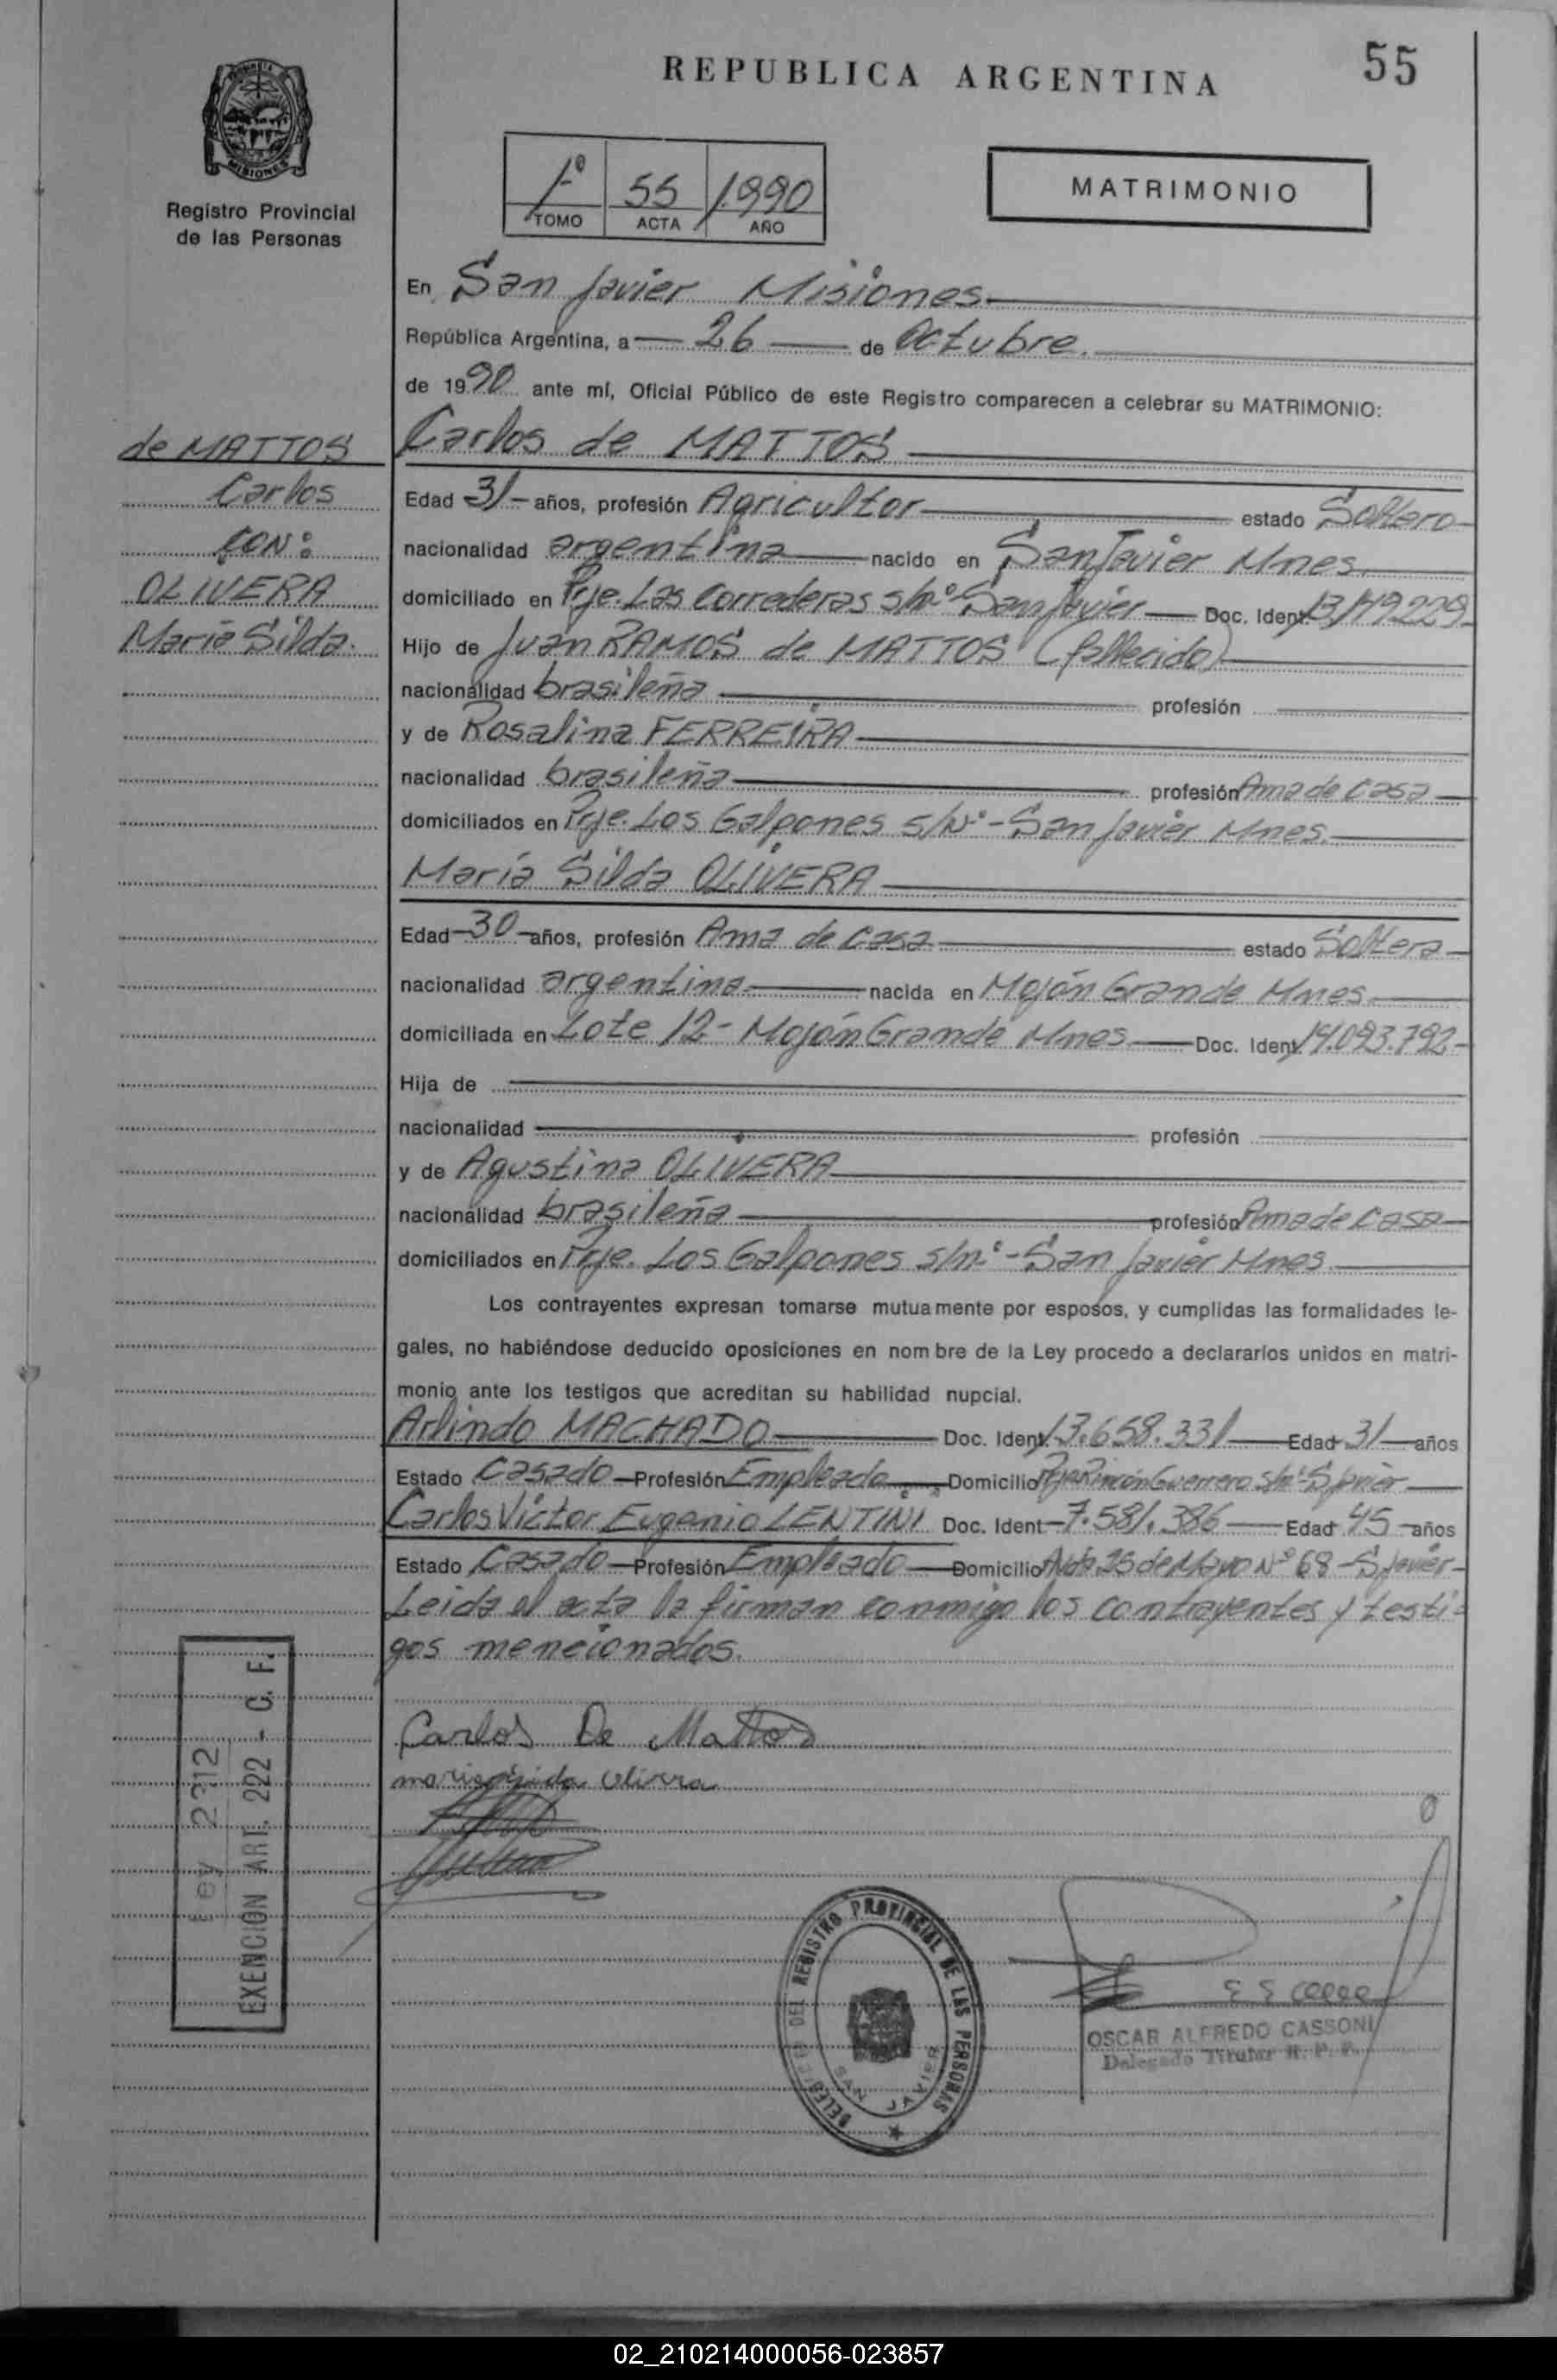 REPUBLICA ARGENTINA
55
MISIONES
Registro Provincial
de las Personas
1º 55 1.990
TOMO ACTA AÑO
MATRIMONIO
En San Javier Misiones
República Argentina, a 26 de Octubre.
de 1990 ante mí, Oficial Público de este Registro comparecen a celebrar su MATRIMONIO:
de MATTOS
Carlos
CON:
OLIVERA
María Silda.
Carlos de MATTOS
Edad 31 años, profesión Agricultor estado Soltero
nacionalidad argentina nacido en San Javier Mnes.
domiciliado en Prje. Las Correderas s/nº San Javier Doc. Ident.
Hijo de Juan RAMOS de MATTOS (fallecido)
nacionalidad brasileña profesión
y de Rosalina FERREIRA
nacionalidad brasileña profesión Ama de Casa
domiciliados en Prje. Los Galpones s/Nº - San Javier Mnes.
María Silda OLIVERA
Edad 30 años, profesión Ama de Casa estado Soltera
nacionalidad argentina nacida en Mojón Grande Mnes.
domiciliada en Lote 12 - Mojón Grande Mnes. Doc. Ident. 14.093.792
Hija de
nacionalidad profesión
y de Agustina OLIVERA
nacionalidad brasileña profesión Ama de Casa
domiciliados en Prje. Los Galpones s/nº - San Javier Mnes
Los contrayentes expresan tomarse mutuamente por esposos, y cumplidas las formalidades le-
gales, no habiéndose deducido oposiciones en nombre de la Ley procedo a declararlos unidos en matri-
monio ante los testigos que acreditan su habilidad nupcial.
Arlindo MACHADO Doc. Ident. 13.658.331 Edad 31 años
Estado Casado Profesión Empleado Domicilio Prje Rincón Guerrero s/nº S. Javier
Carlos Víctor Eugenio LENTINI Doc. Ident 7.581.386 Edad 45 años
Estado Casado Profesión Empleado Domicilio Avda 25 de Mayo Nº 68 - S. Javier
Leida el acta la firman conmigo los contrayentes y testi-
gos mencionados.
Carlos De Mattos
Olivera
Ley 2312
EXENCION ART. 222 - C. F.
DEL REGISTRO PROVINCIAL DE LAS PERSONAS
SAN JAVIER
OSCAR ALFREDO CASSONI
Delegado Titular R. P. P.
02_210214000056-023857